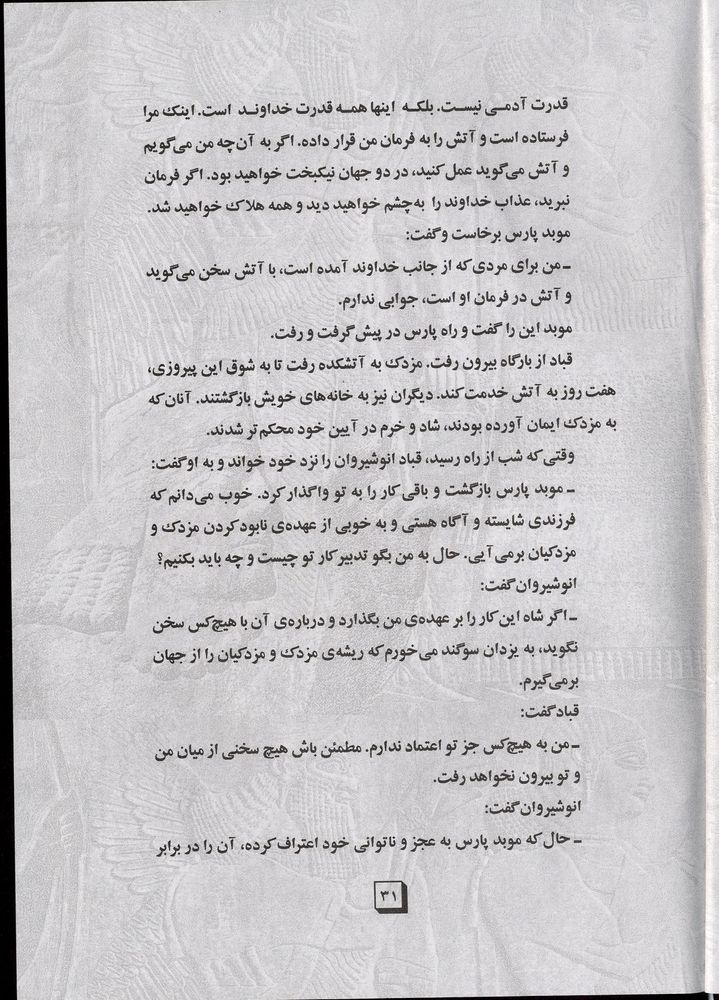 قدرت آدمی نیست. بلکه اینها همه قدرت خداوند است. اینک مرا
فرستاده است و آتش را به فرمان من قرار داده. اگر به آن‌چه من می‌گویم
و آتش می‌گوید عمل کنید، در دو جهان نیکبخت خواهید بود. اگر فرمان
نبرید، عذاب خداوند را به‌چشم خواهید دید و همه هلاک خواهید شد.
موبد پارس برخاست و گفت:
ـ من برای مردی که از جانب خداوند آمده است، با آتش سخن می‌گوید
و آتش در فرمان او است، جوابی ندارم.
موبد این را گفت و راه پارس در پیش گرفت و رفت.
قباد از بارگاه بیرون رفت. مزدک به آتشکده رفت تا به شوق این پیروزی،
هفت روز به آتش خدمت کند. دیگران نیز به خانه‌های خویش بازگشتند. آنان که
به مزدک ایمان آورده بودند، شاد و خرم در آیین خود محکم‌تر شدند.
وقتی که شب از راه رسید، قباد انوشیروان را نزد خود خواند و به او گفت:
ـ موبد پارس بازگشت و باقی کار را به تو واگذار کرد. خوب می‌دانم که
فرزندی شایسته و آگاه هستی و به خوبی از عهده‌ی نابود کردن مزدک و
مزدکیان برمی‌آیی. حال به من بگو تدبیر کار تو چیست و چه باید بکنیم؟
انوشیروان گفت:
ـ اگر شاه این کار را بر عهده‌ی من بگذارد و درباره‌ی آن با هیچ‌کس سخن
نگوید، به یزدان سوگند می‌خورم که ریشه‌ی مزدک و مزدکیان را از جهان
برمی‌گیرم.
قباد گفت:
ـ من به هیچ‌کس جز تو اعتماد ندارم. مطمئن باش هیچ سخنی از میان من
و تو بیرون نخواهد رفت.
انوشیروان گفت:
ـ حال که موبد پارس به عجز و ناتوانی خود اعتراف کرده، آن را در برابر
۳۱